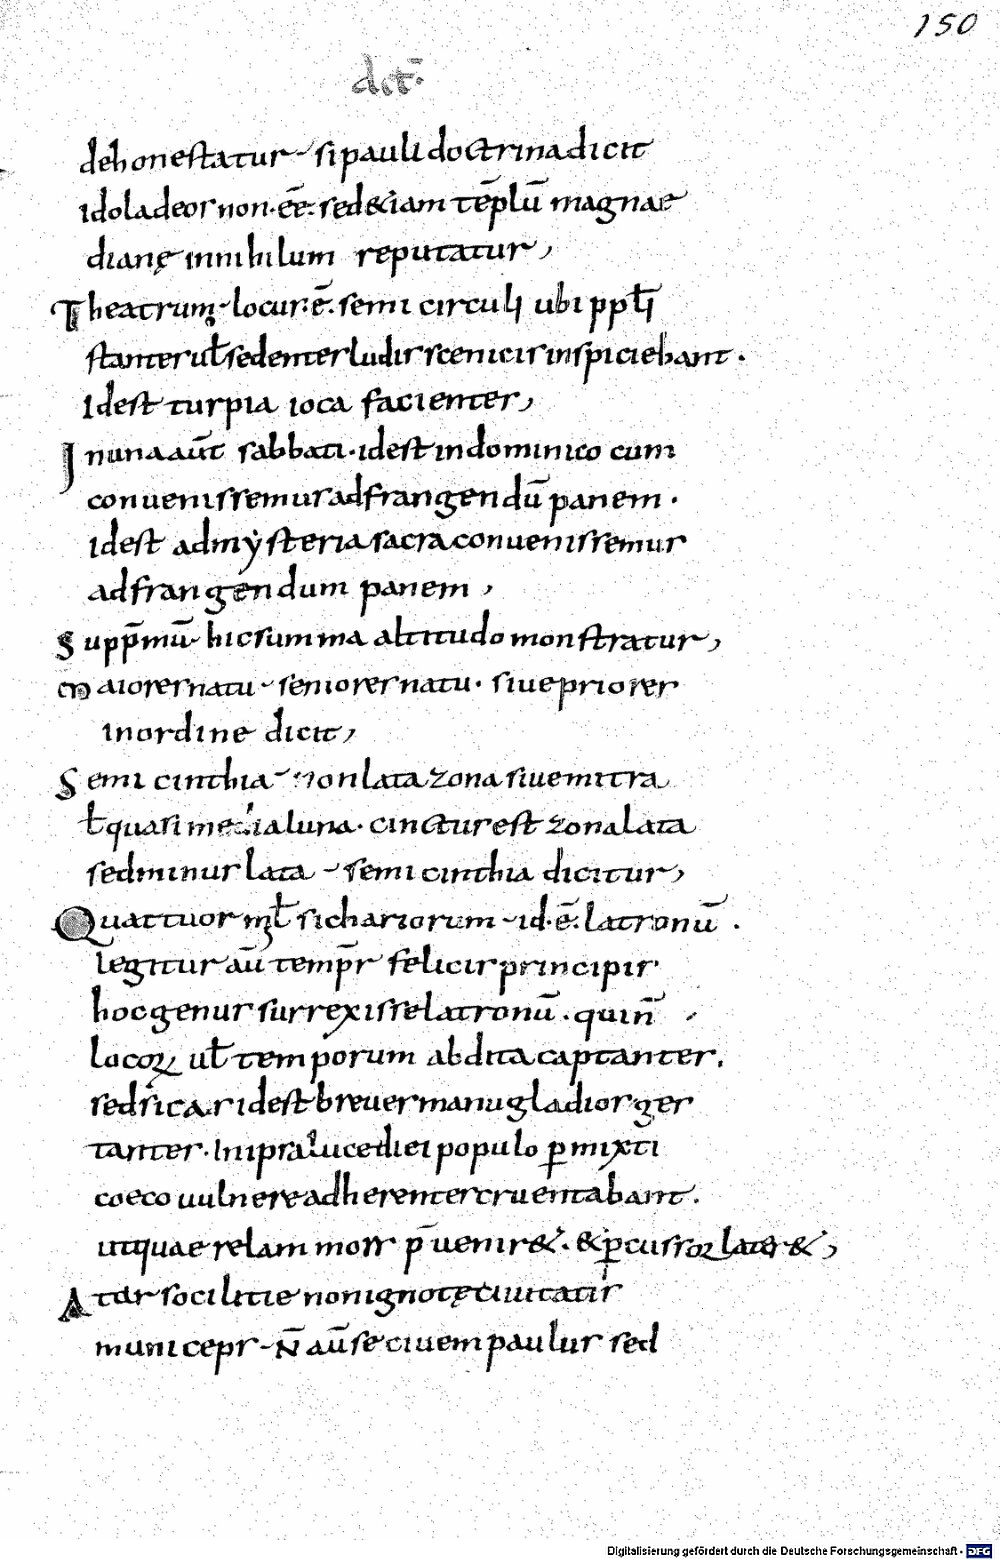 150
act̄·
dehonestatur- si pauli doctrina dicit
idola deos non·ēē· sed &iam tēplū magnae
dianę in nihilum reputatur,
Theatrum· locus·ē· semi circuli ubi pplī
stantes ul̄ sedentes ludis scenicis inspiciebant·
Idest turpia ioca facientes,
In una aut̄ sabbati· idest in dominico cum
convenissemus ad frangendū panem·
idest ad mẏsteria sacra convenissemus
ad frangendum panem,
Supp̄mū· hic summa altitudo monstratur,
Maiores natu- seniores natu· sive priores
in ordine dicit,
Semi cinthia- non lata zona sive mitra
ł quasi media luna· cinctus est zona lata
sed minus lata - semi cinthia dicitur,
Quattuor mł sichariorum- id·ē· latronū·
legitur aū temp̄r felicis principis
hoc genus surrexisse latronū· qui n̄
locoꝝ ul̄ temporum abdita captantes.
sed sicas idest breves manu gladios ges
tantes· In ipsa luce diei populo ꝑmixti
coeco vulnere adherentes cruentabant.
utquae relam mors p̄venir&· & ꝑcussoꝝ later&,
A tarso cilitie non ignotę civitatis
municeps- N̄ aū se civem paulus sed
Digitalisierung gefördert durch die Deutsche Forschungsgemeinschaft - DFG